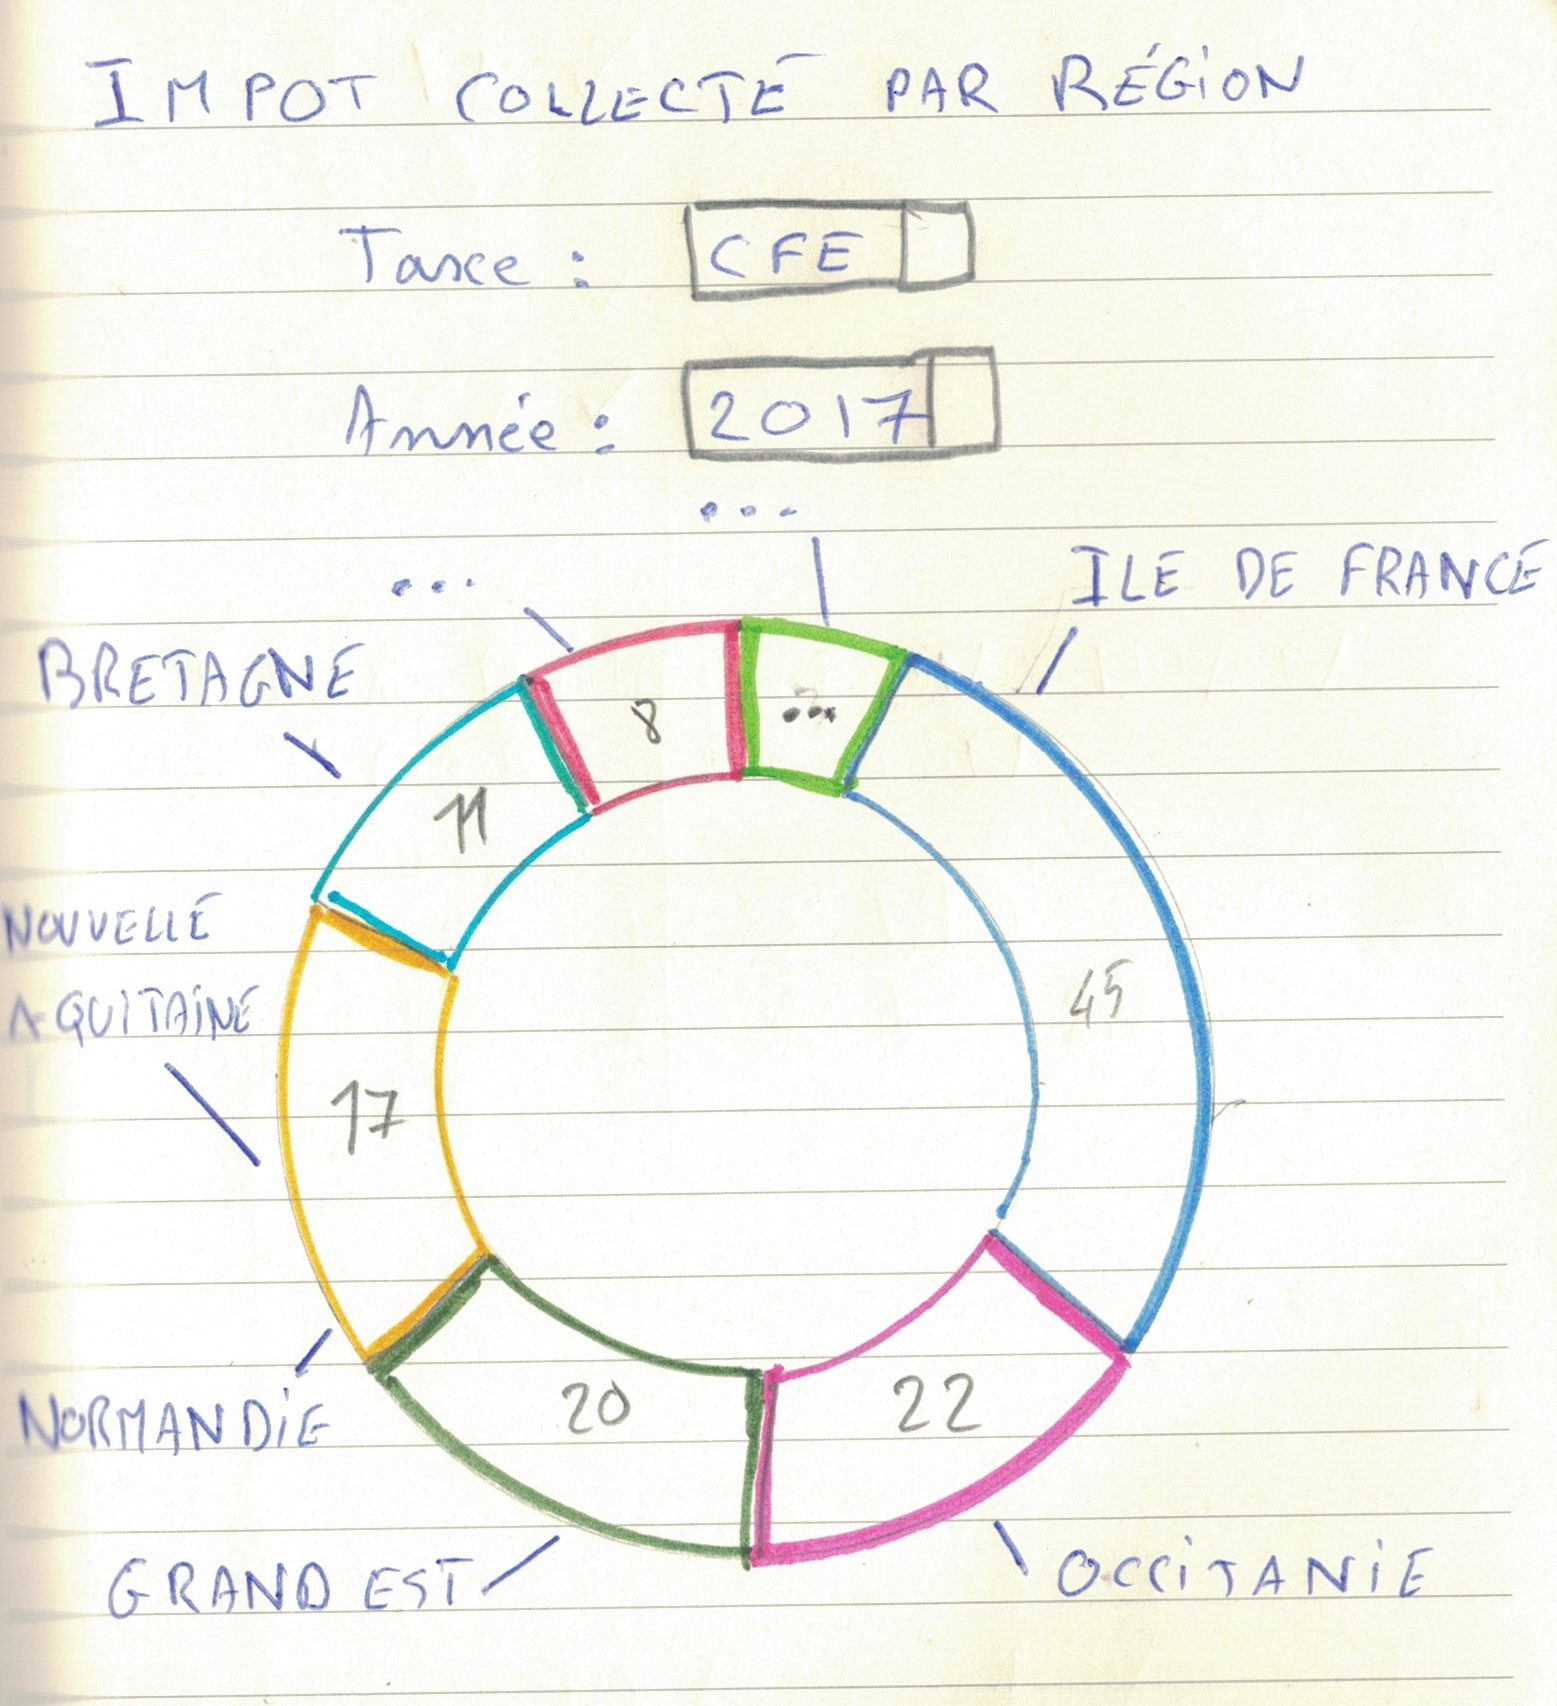 IMPOT COLLECTÉ PAR RÉGION
Taxe :
CFE
Année :
2017
...
...
ILE DE FRANCE
BRETAGNE
8
...
11
NOUVELLE
AQUITAINE
45
17
20
22
NORMANDIE
GRAND EST
OCCITANIE